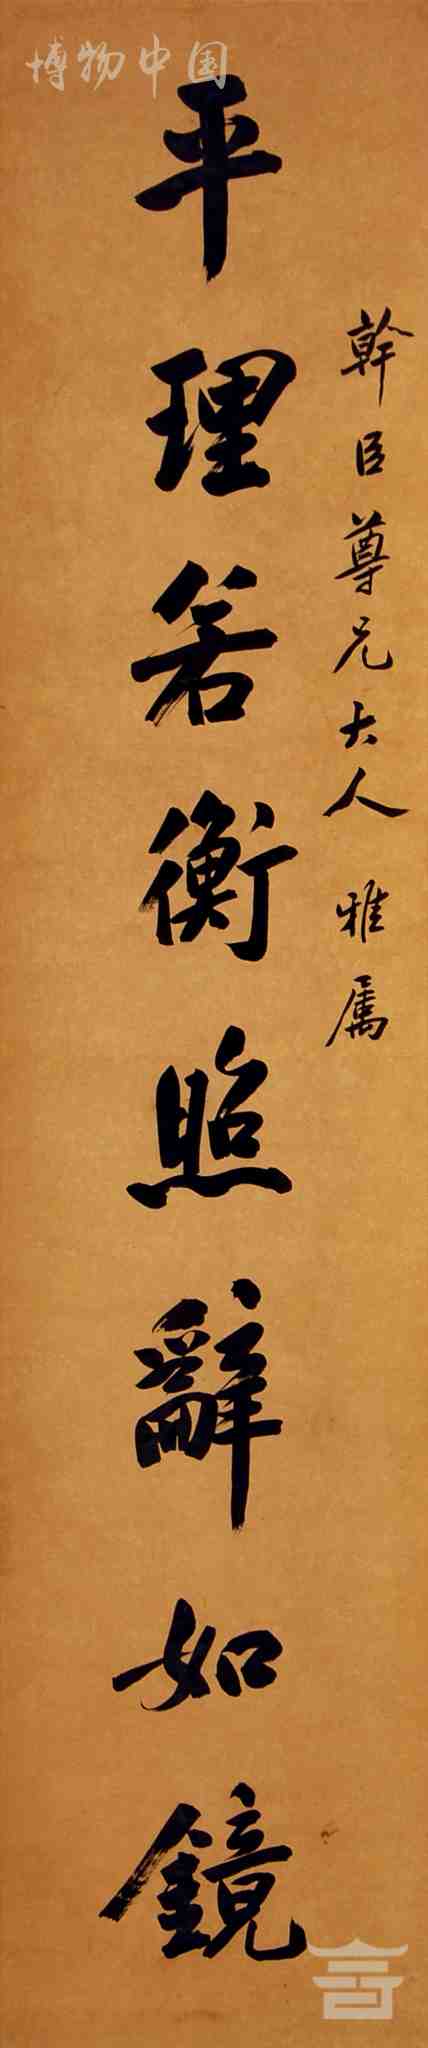 博物中国
幹臣尊兄大人 雅属
平理若衡照辭如鏡